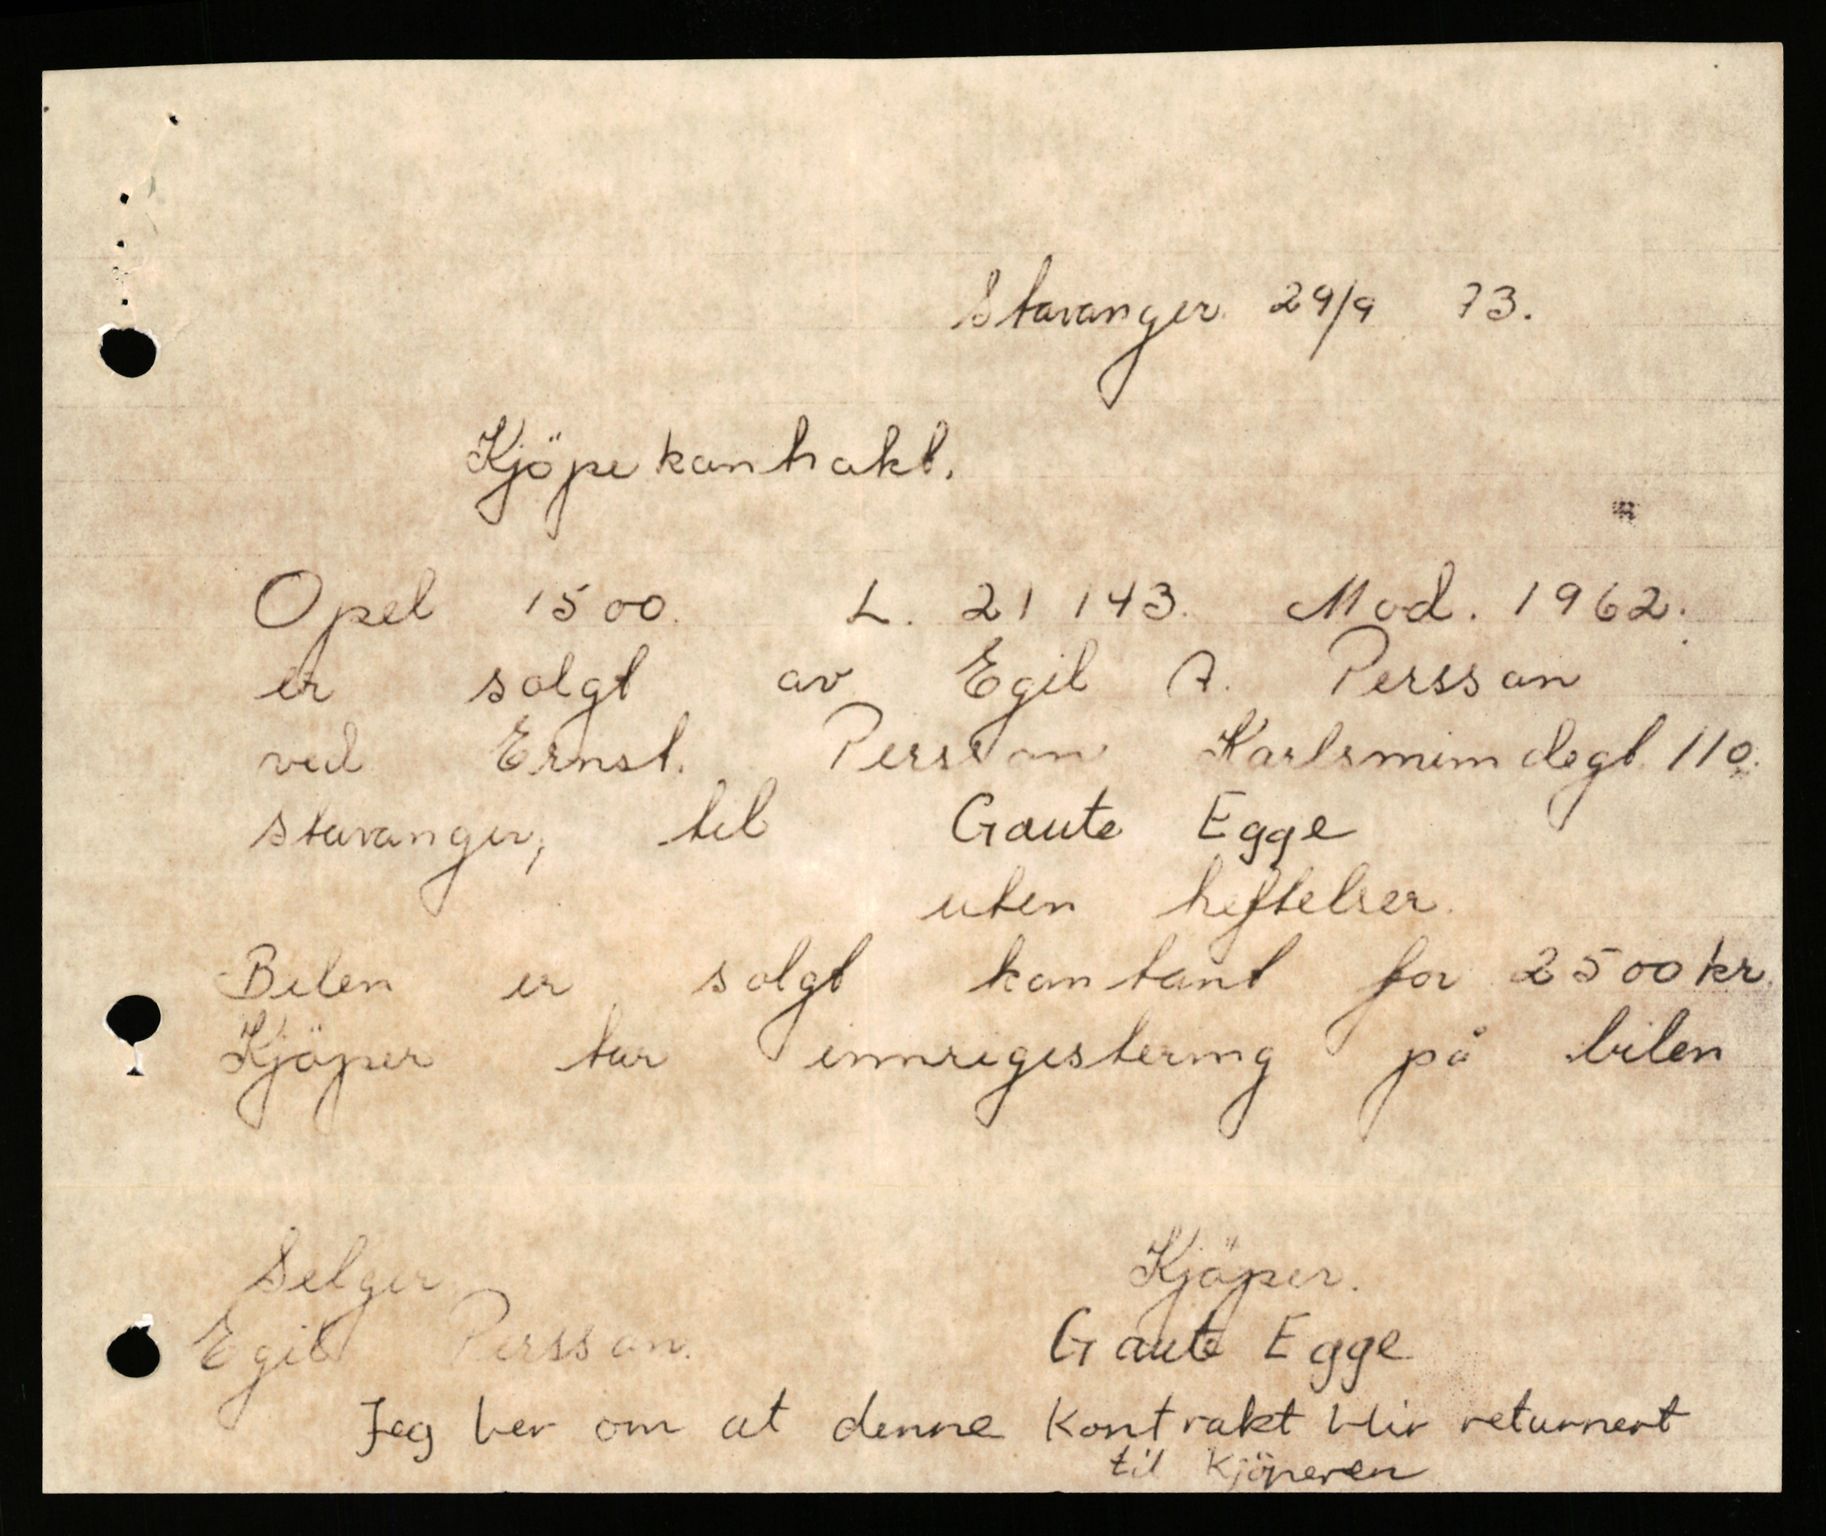 Stavanger 29/9 73.
Kjöpekontrakt.
Opel 1500. L. 21 143. Mod. 1962.
er solgt av Egil A. Persson
ved Ernst. Persson Karlsminndegt. 110.
Stavanger, til Gaute Egge
uten heftelser.
Bilen er solgt kontant for 2500 kr.
Kjöper tar innregistering på bilen
Selger Kjöper.
Egil Persson. Gaute Egge
Jeg ber om at denne kontrakt blir returnert
til Kjöperen